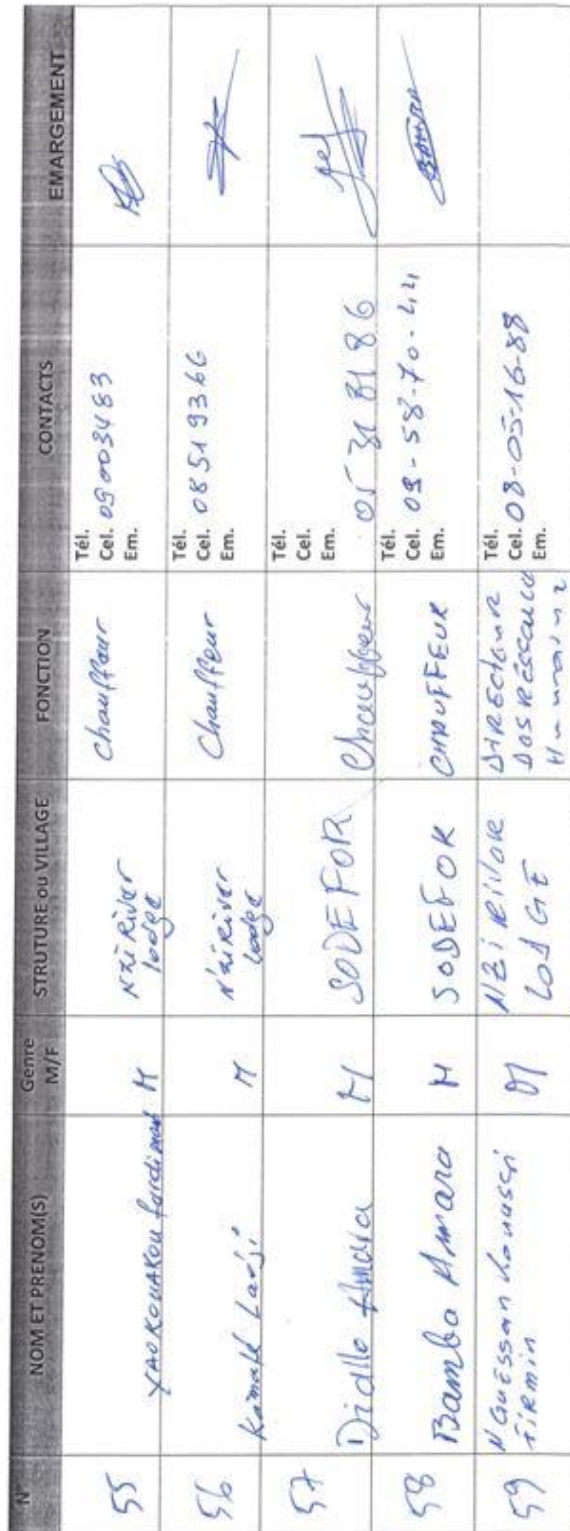 N° NOM ET PRENOM(S) Genre M/F STRUTURE ou VILLAGE FONCTION CONTACTS EMARGEMENT
55 YAO KOUAKOU Ferdinand M N'zi River lodge Chauffeur Tél. Cel. 09003483 Em.
56 Kamaté Larji M N'zi River Lodge Chauffeur Tél. Cel. 08519366 Em.
57 Diallo Amara M SODEFOR Chauffeur Tél. Cel. 05318186 Em.
58 Bamba Amara M SODEFOR CHAUFFEUR Tél. Cel. 09-58-70-44 Em.
59 N'Guéssan Kouassi Firmin M N'Zi RIVER LODGE DIRECTEUR DES RESSOURCES Humaines Tél. Cel. 08-05-16-88 Em.